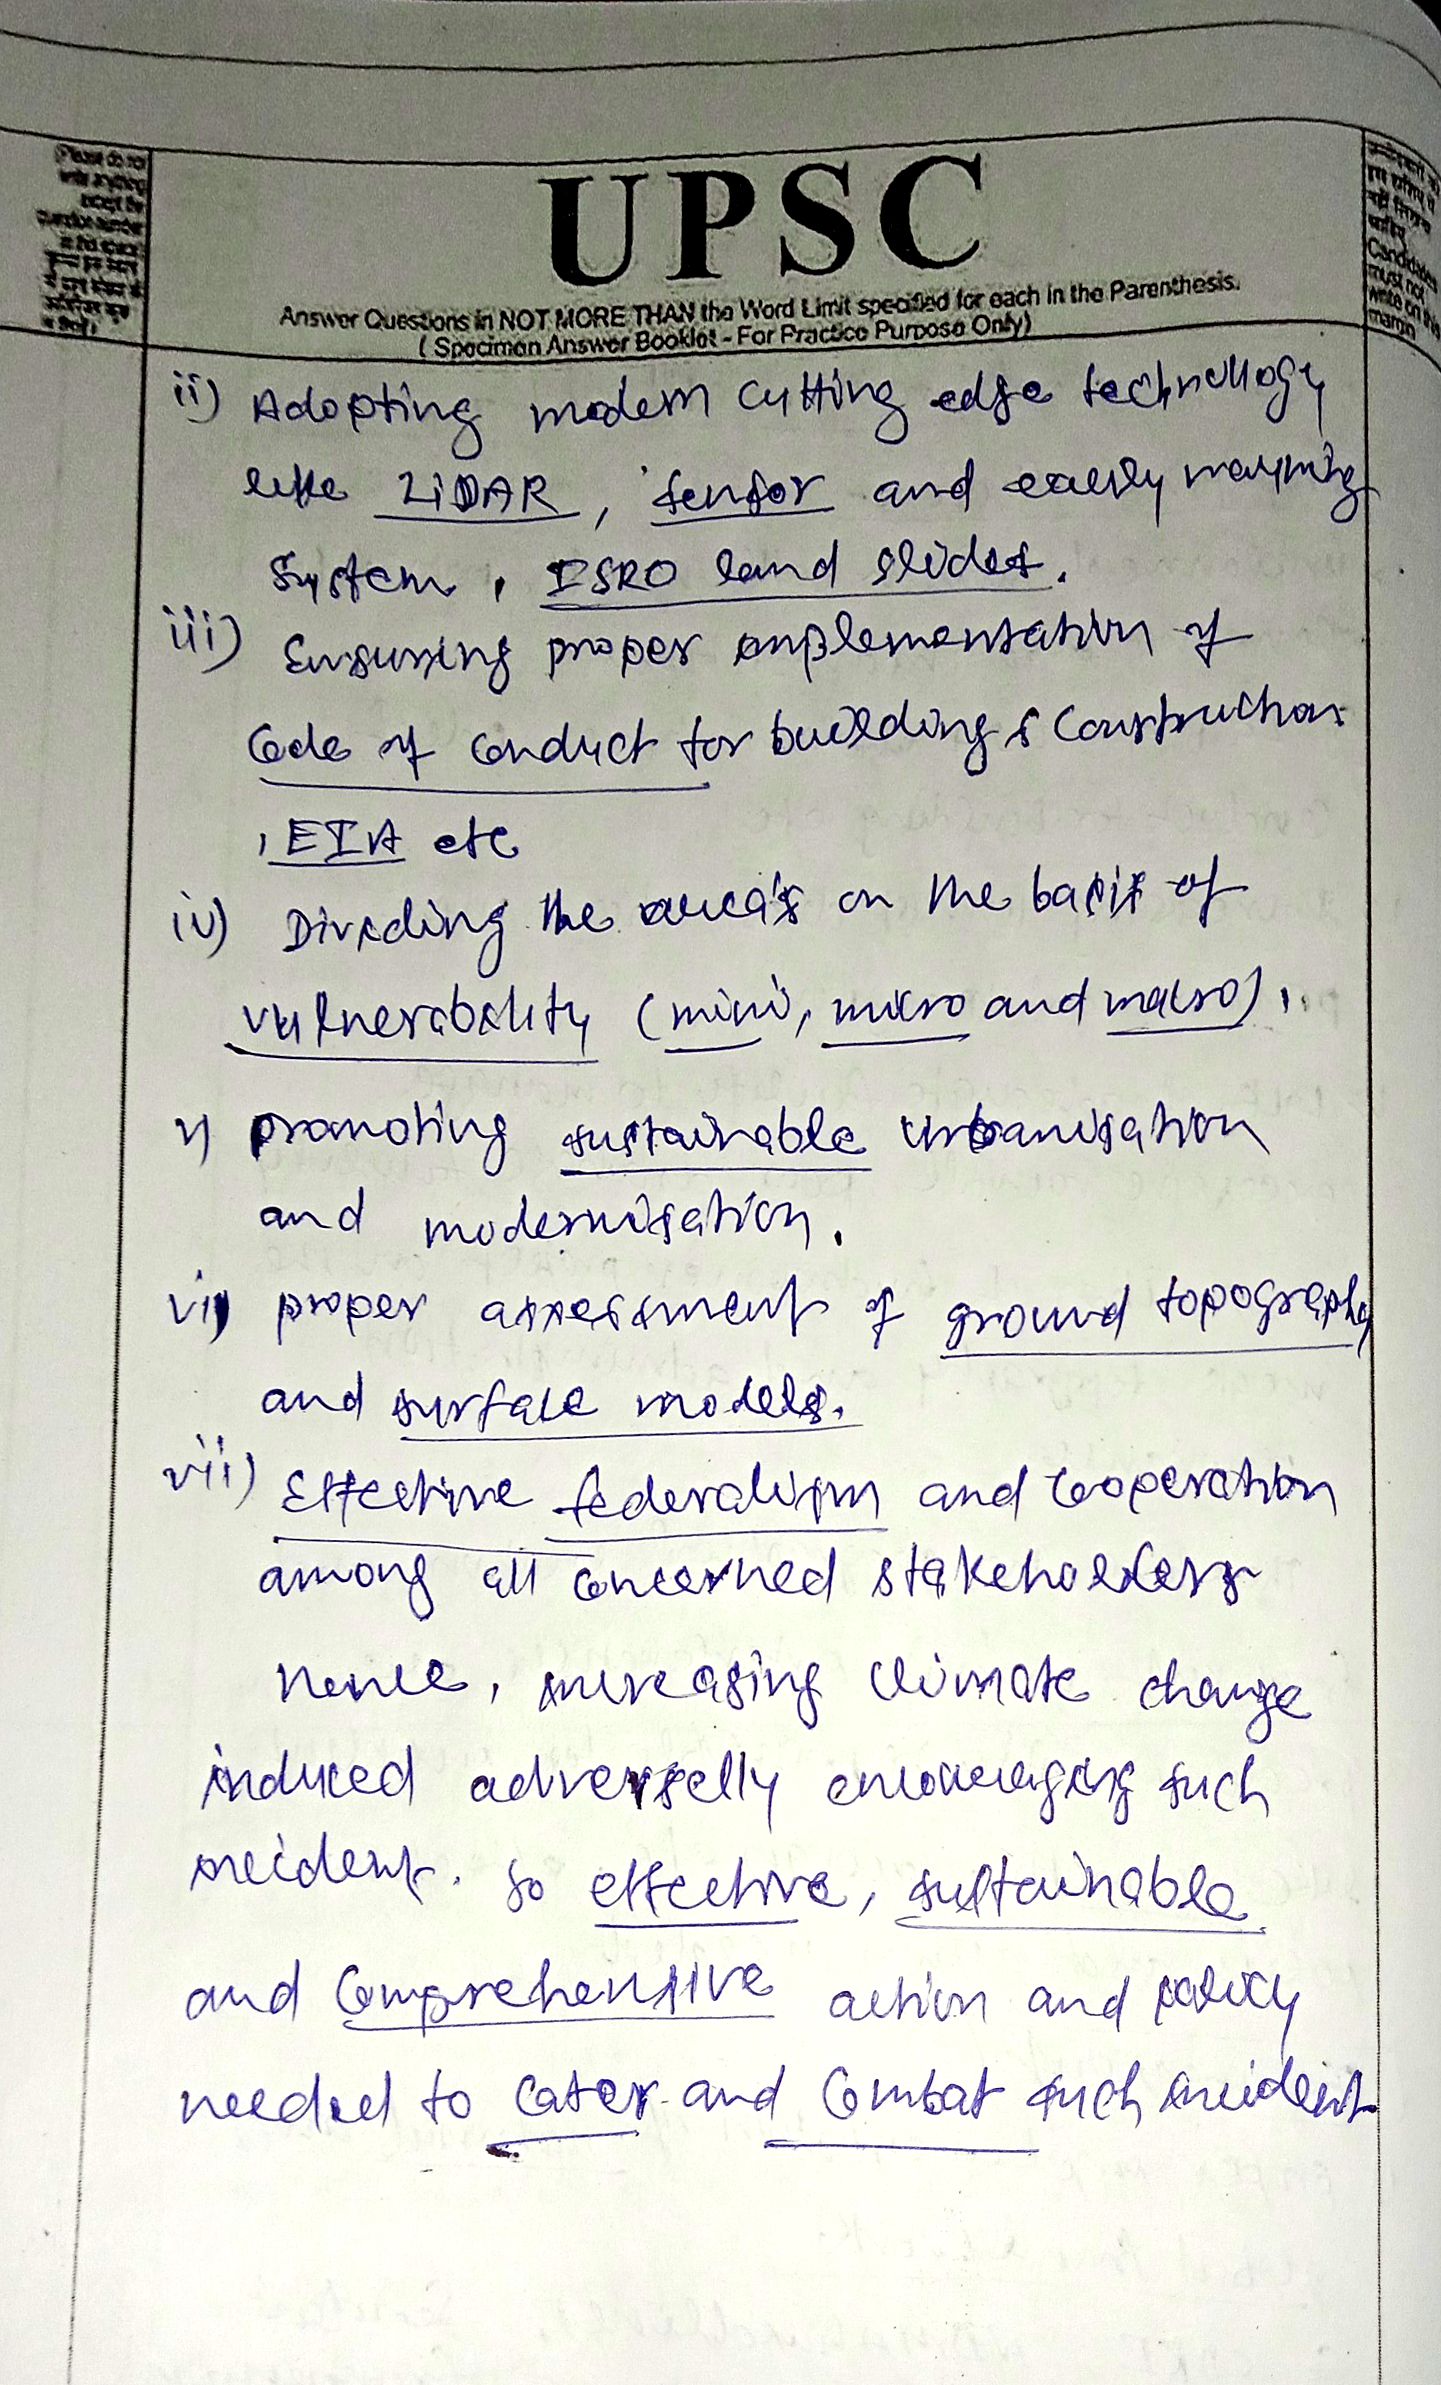 (Please do not
write anything
except the
question number
in this space
UPSC
Answer Questions in NOT MORE THAN the Word Limit specified for each in the Parenthesis.
( Specimen Answer Booklet - For Practice Purpose Only)
Candidates
must not
write on this
margin
ii) Adopting modern cutting edge technology
like LiDAR, sensor and early warning
system, ISRO land slides.
iii) Ensuring proper implementation of
Code of conduct for building & construction
, EIA etc
iv) Dividing the area's on the basis of
vulnerability (mini, micro and macro),
v) promoting sustainable urbanisation
and modernisation.
vi) proper assessment of ground topography
and surface models.
vii) Effective federalism and cooperation
among all concerned stakeholders
Hence, increasing climate change
induced adverselly encouraging such
incident. So effective, sustainable
and comprehensive action and policy
needed to cater and combat such incident